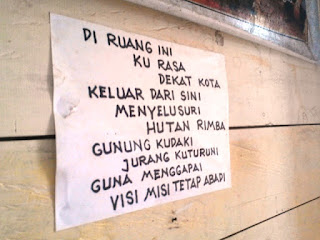 DI RUANG INI
KU RASA
DEKAT KOTA
KELUAR DARI SINI
MENYELUSURI
HUTAN RIMBA
GUNUNG KUDAKI
JURANG KUTURUNI
GUNA MENGGAPAI
VISI MISI TETAP ABADI